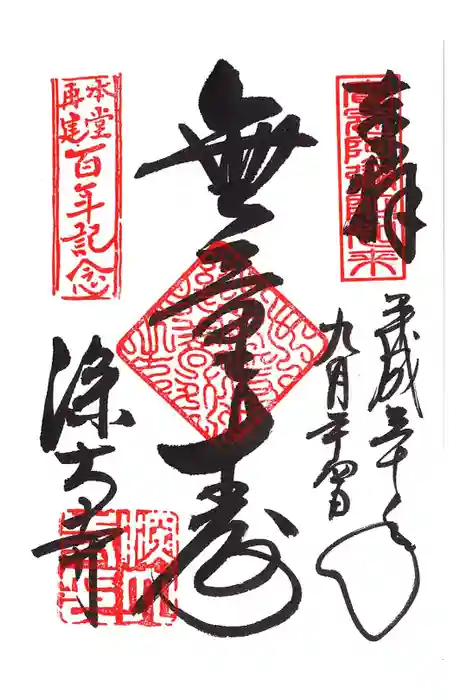 奉拝
平成三十年
九月二十四日
無量寿
本堂
再建
百年記念
深大寺